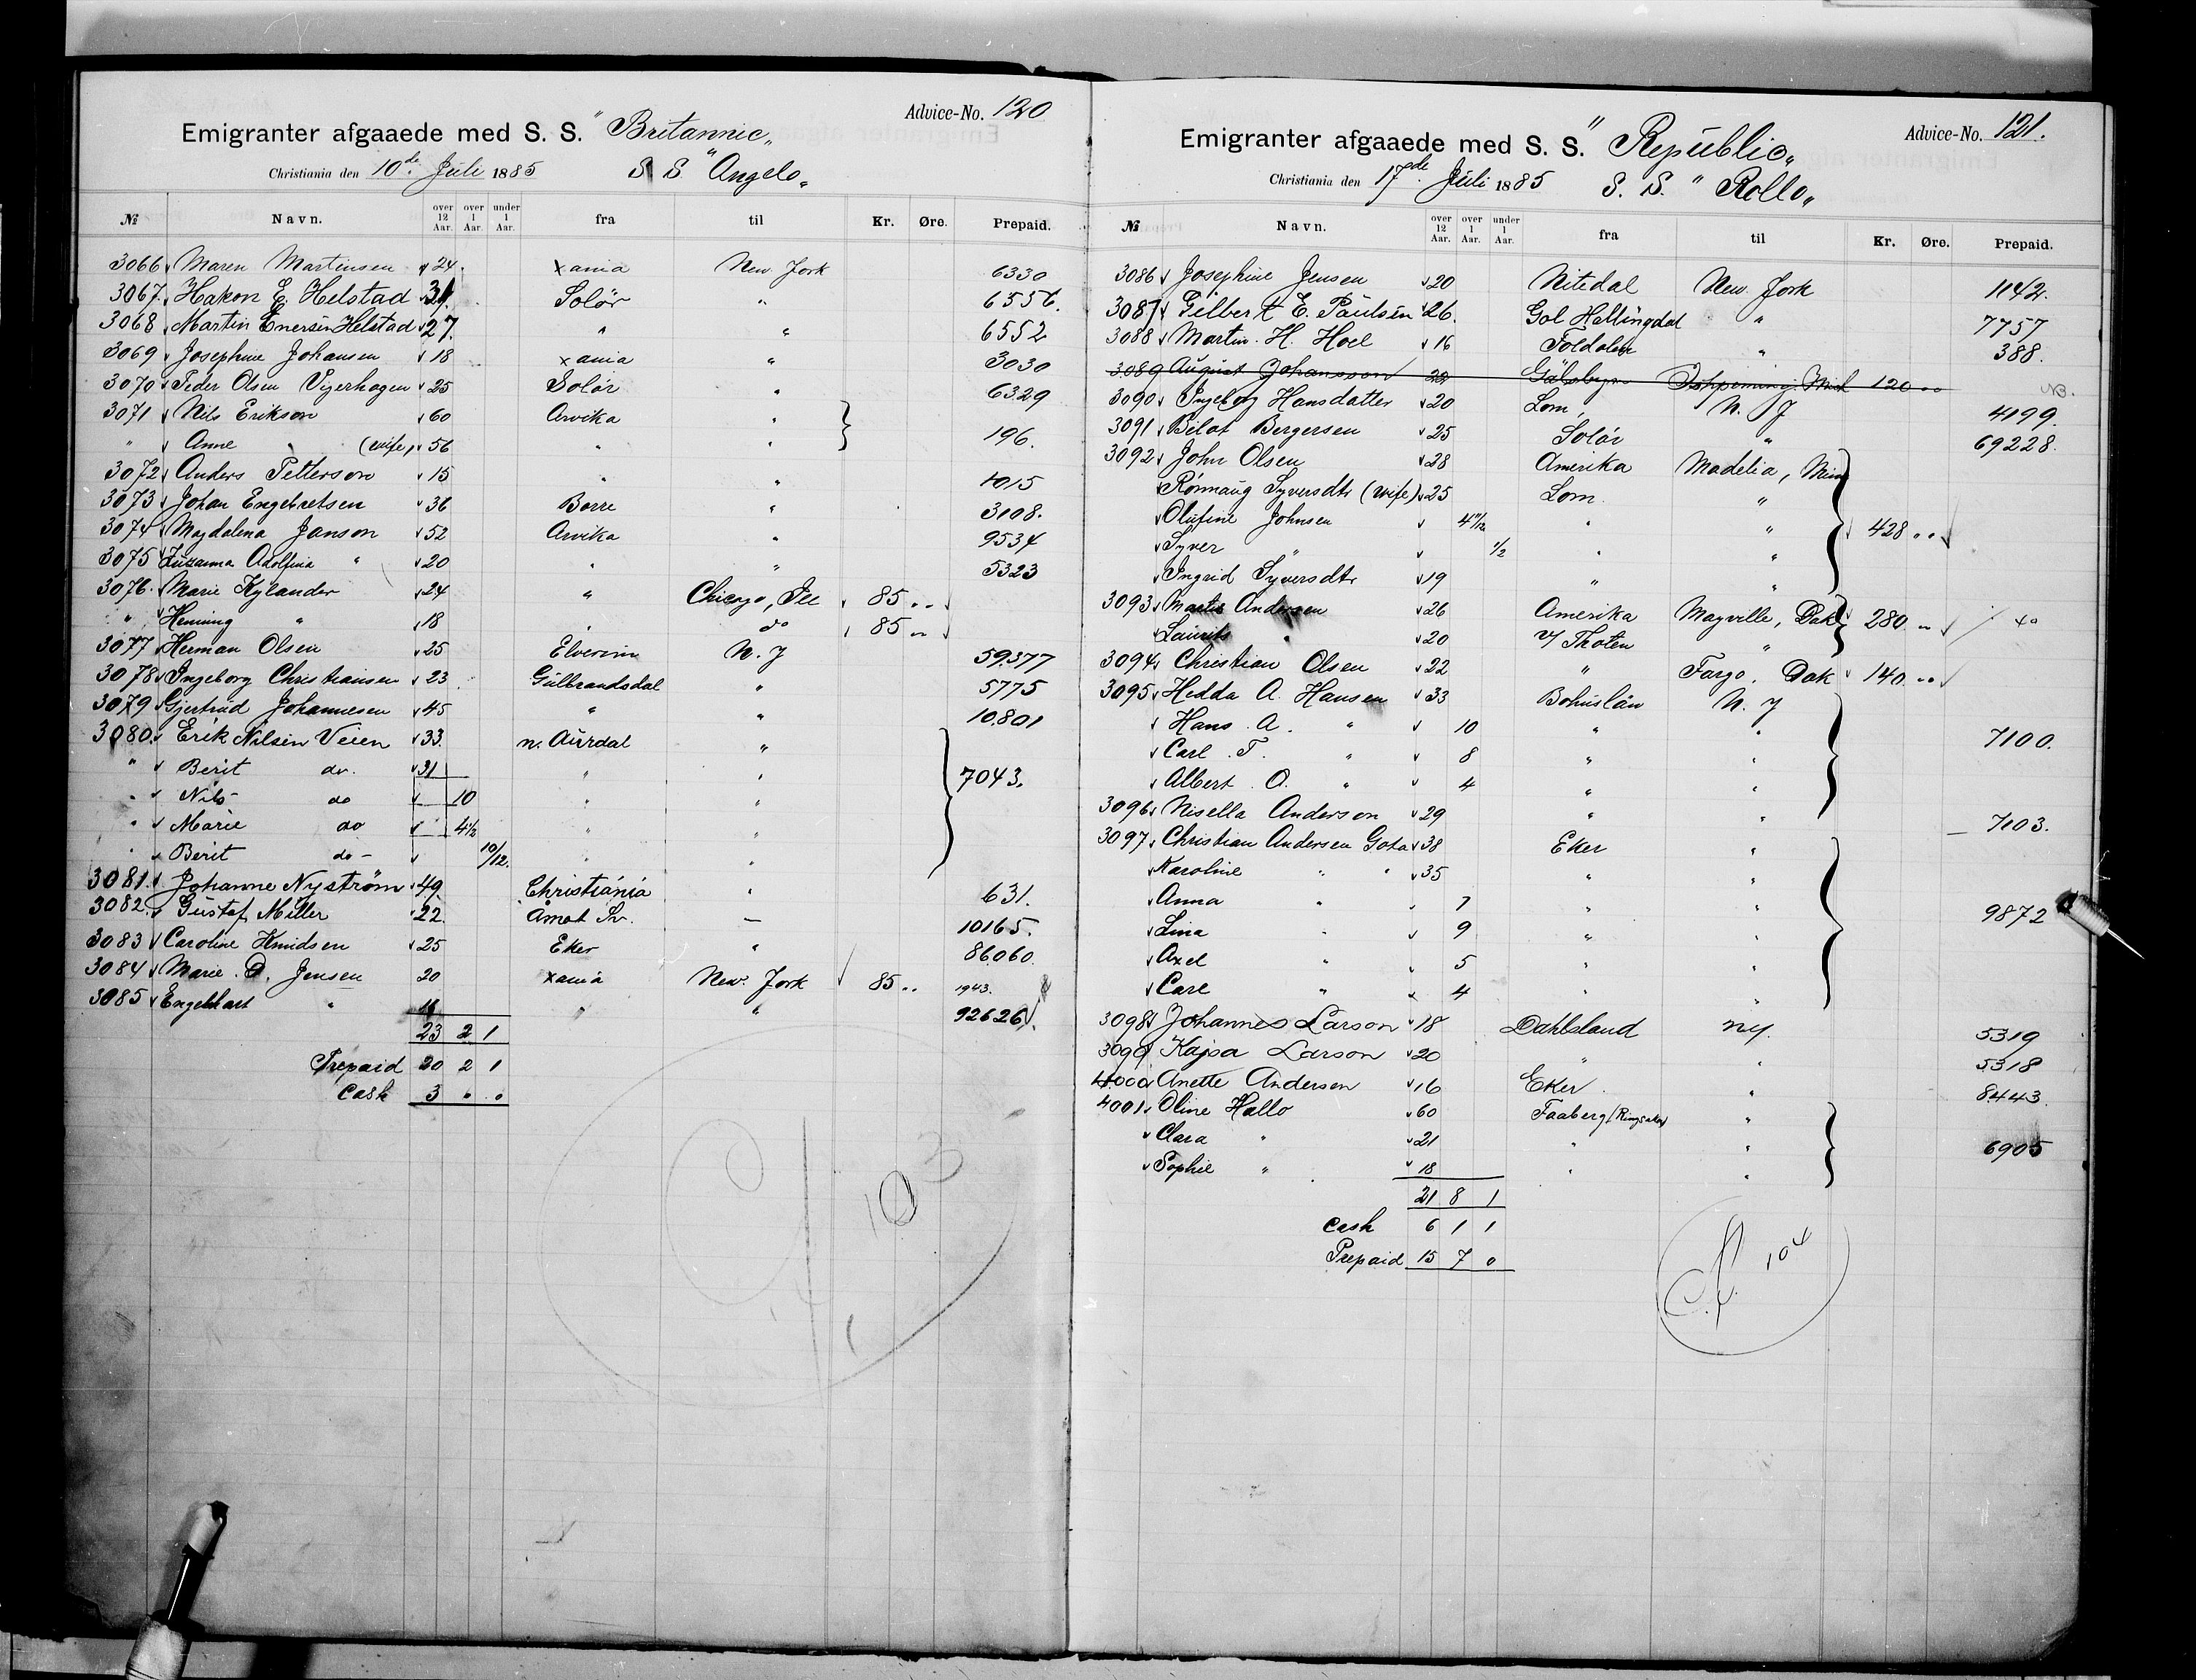 Advice-No. 120
Emigranter afgaaede med S. S. "Britannic„
Christiania den 10de Juli 1885 S S "Angelo„
№ Navn. over 12 Aar. over 1 Aar. under 1 Aar. fra til Kr. Øre. Prepaid.
3066 Maren Martinsen 24. Xania New York 6330
3067 Hakon E. Helstad 31. Solör " 6556.
3068 Martin Enersen Helstad 27. " " 6552
3069 Josephine Johansen 18 Xania " 3030
3070 Peder Olsen Vigerhagen 25 Solör " 6329
3071 Nils Erikson 60 Arvika "
" Anne " (wife) 56 " " 196.
3072 Anders Petterson 15 " " 1015
3073 Johan Engebretsen 36 Borre " 3108.
3074 Magdalena Janson 52 Arvika " 9534
3075 Zuzanna Adolfina " 20 " " 5323
3076. Marie Kylander 24 " Chicago, Ill 85 "
" Henning " 18 " do 85 "
3077 Herman Olsen 25 Elverum N. Y 59377
3078 Ingeborg Christiansen 23 Gulbrandsdal " 5775
3079 Gjertrud Johannesen 45 " " 10801
3080. Erik Nilsen Veien 33. n. Aurdal "
" Berit do. 31 " " 7043.
" Nils do 10 " "
" Marie do 4½ " "
" Berit do - 10/12. " "
3081. Johanne Nyström 49. Christiania " 631.
3082. Gustaf Miller 22. Åmot Sv. — 10165.
3083 Caroline Knudsen 25 Eker " 86060.
3084 Marie D. Jensen 20 Xania New. York 85 " 1943.
3085 Engebhart " " " 92626.
23 2 1
Prepaid 20 2 1
Cash 3 " 0
103
Advice-No. 121.
Emigranter afgaaede med S. S. "Republic„
Christiania den 17de Juli 1885 S. S. "Rollo„
№ Navn. over 12 Aar. over 1 Aar. under 1 Aar. fra til Kr. Øre. Prepaid.
3086 Josephine Jensen 20 Nitedal New York 1142.
3087 Gilbert E. Paulsen 26. Gol Hallingdal " 7757
3088 Martin. H. Hoel 16 Foldalen " 388.
3089 August Johansson Gälsbyn Ishpeming Mich 120 "
NB.
3090 Ingeborg Hansdatter 20 Lom, N. Y 4199.
3091 Belat Bergersen 25 Solör " 69228.
3092 John Olsen 28 Amerika Madelia, Min
Rönnaug Syversdtr (wife) 25 Lom. "
Olufine Johnsen 4 11/12 " " 428 "
Syver " 1/2 " "
Ingrid Syversdtr 19 " "
3093 Martin Andersen 26 Amerika Mayville, Dak 280 "
Laurits " 20 V Thoten "
3094 Christian Olsen 22 " Fargo. Dak 140 "
3095 Hedda A. Hansen 33 Bohuslän N. Y
Hans A. " 10 " " 7100.
Carl F. " 8 " "
Albert O. " 4 " "
3096 Nisella Anderson 29 " " 7103.
3097 Christian Andersen Gota 38 Eker "
Karoline " " 35 " "
Anna " 7 " "
Lina " 9 " " 9872
Axel " 5 " "
Carl " 4 " "
3098 Johannes Larson 18 Dahlsland ny. 5319
3099 Kajsa Larson 20 " " 5318
4000 Anette Andersen 16 Eker. " 8443.
4001 Oline Hallo 60 Faaberg (Ringsaker) "
Clara " 21 " " 6905
Sophie " 18 " "
21 8 1
Cash 6 1 1
Prepaid 15 7 0
104